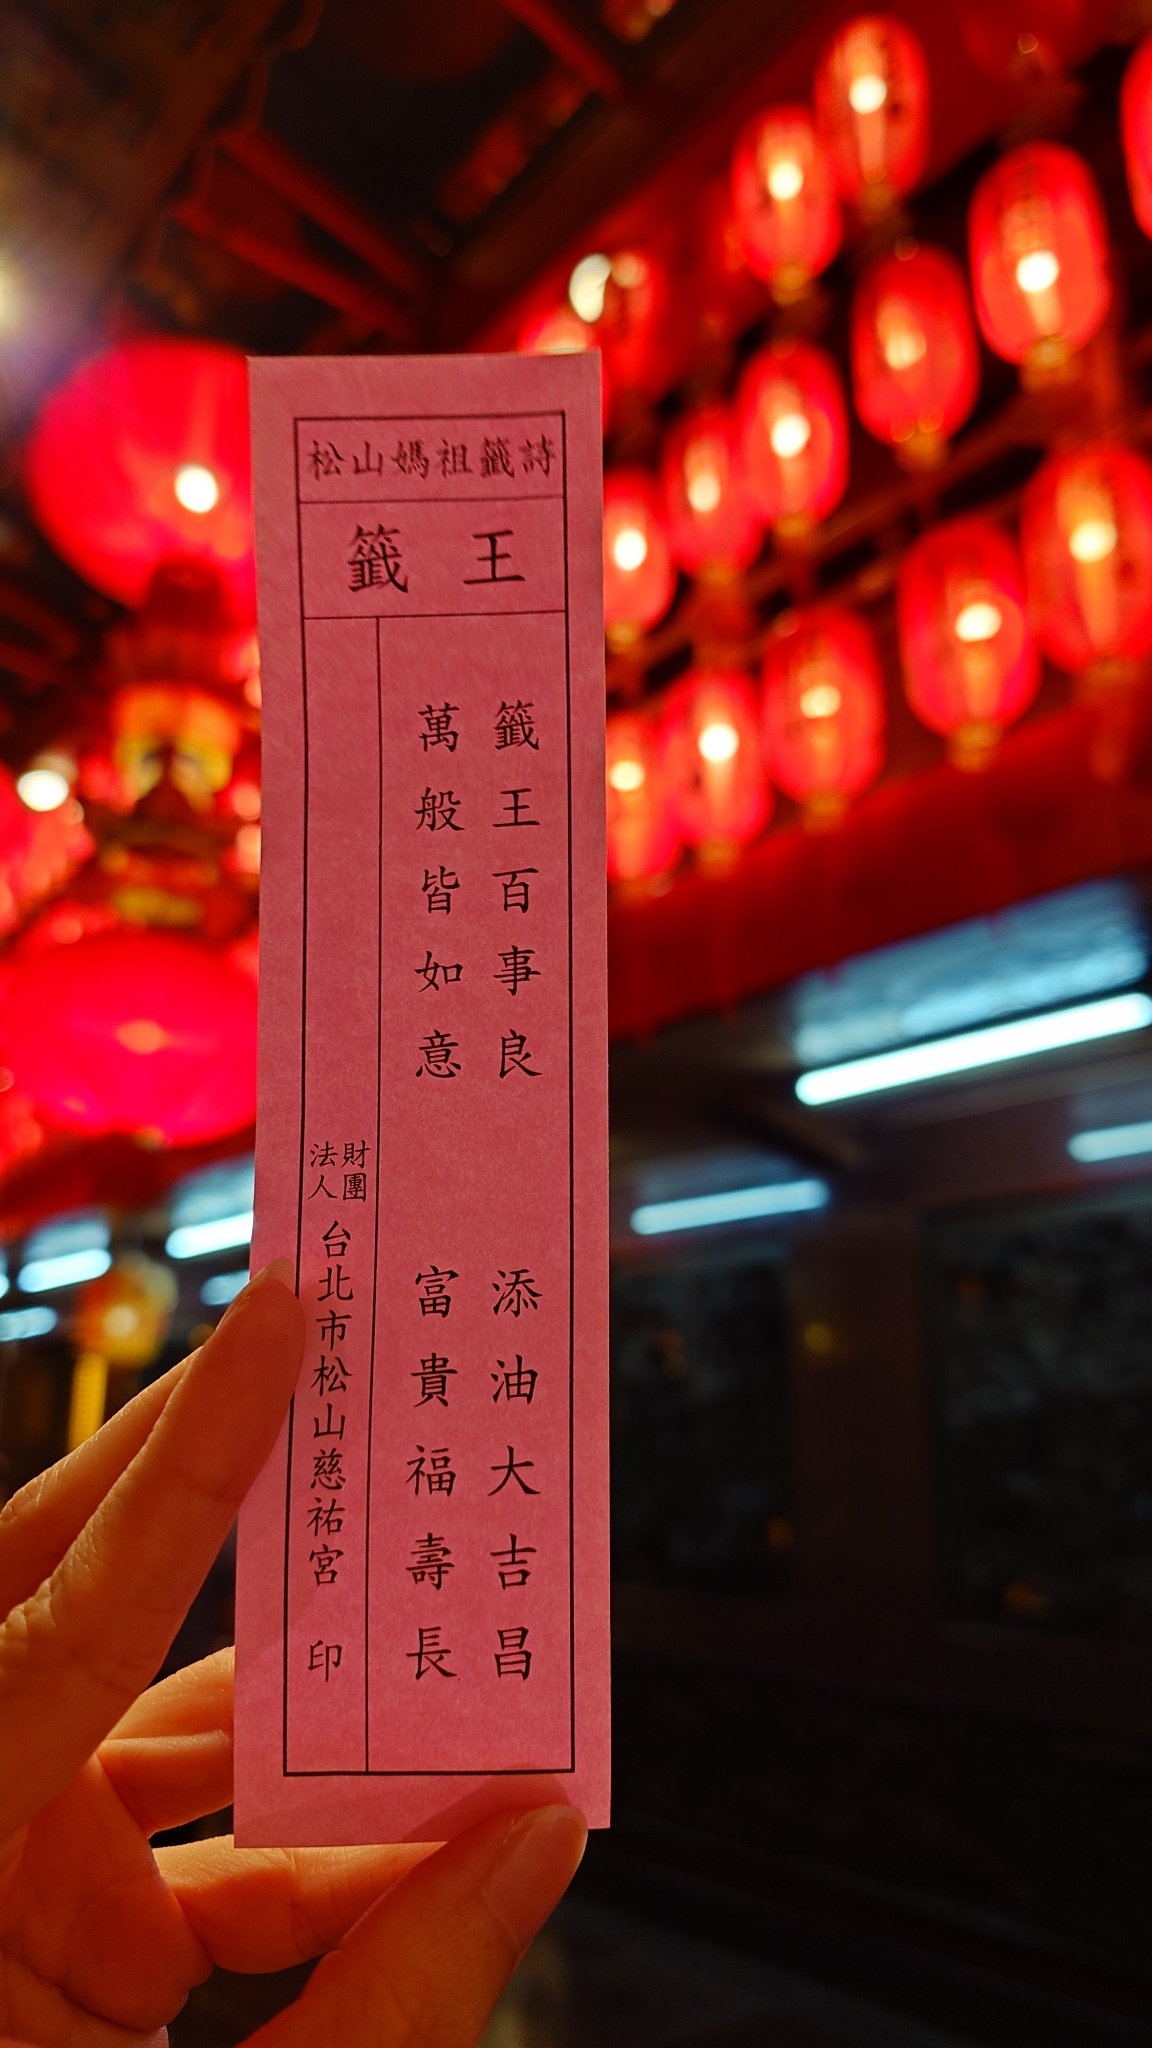 松山媽祖籤詩
籤王
籤王百事良 添油大吉昌
萬般皆如意 富貴福壽長
財團法人台北市松山慈祐宮 印